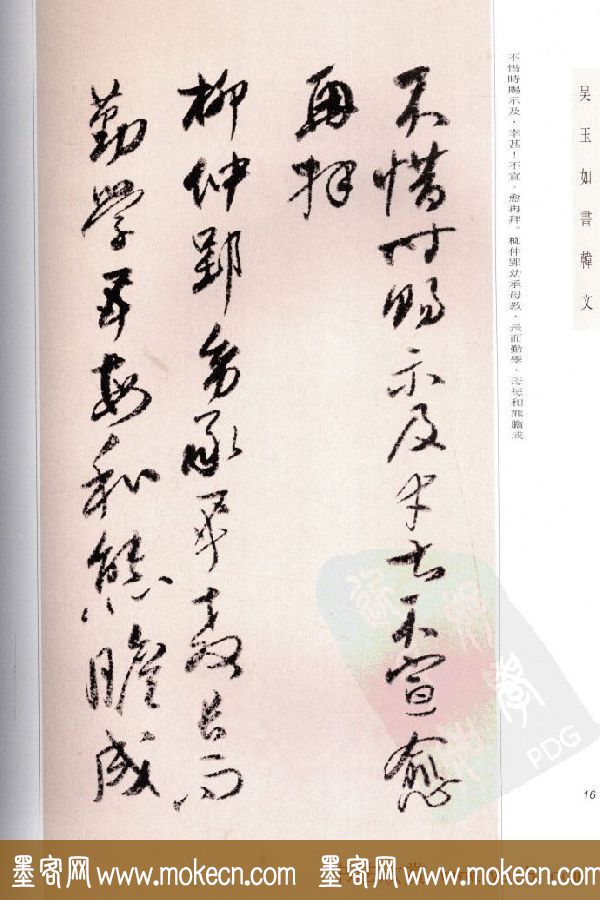 吴玉如書韓文
不惜時賜示及，幸甚！不宣。愈再拜。柳仲郢幼承母教，長而勤學，母每和熊膽成
不惜时賜示及幸甚不宣愈
再拜
柳仲郢幼承母教長而
勤學母每和熊膽成
PDG
16
墨客网 www.mokecn.com 墨客网 www.mokecn.com